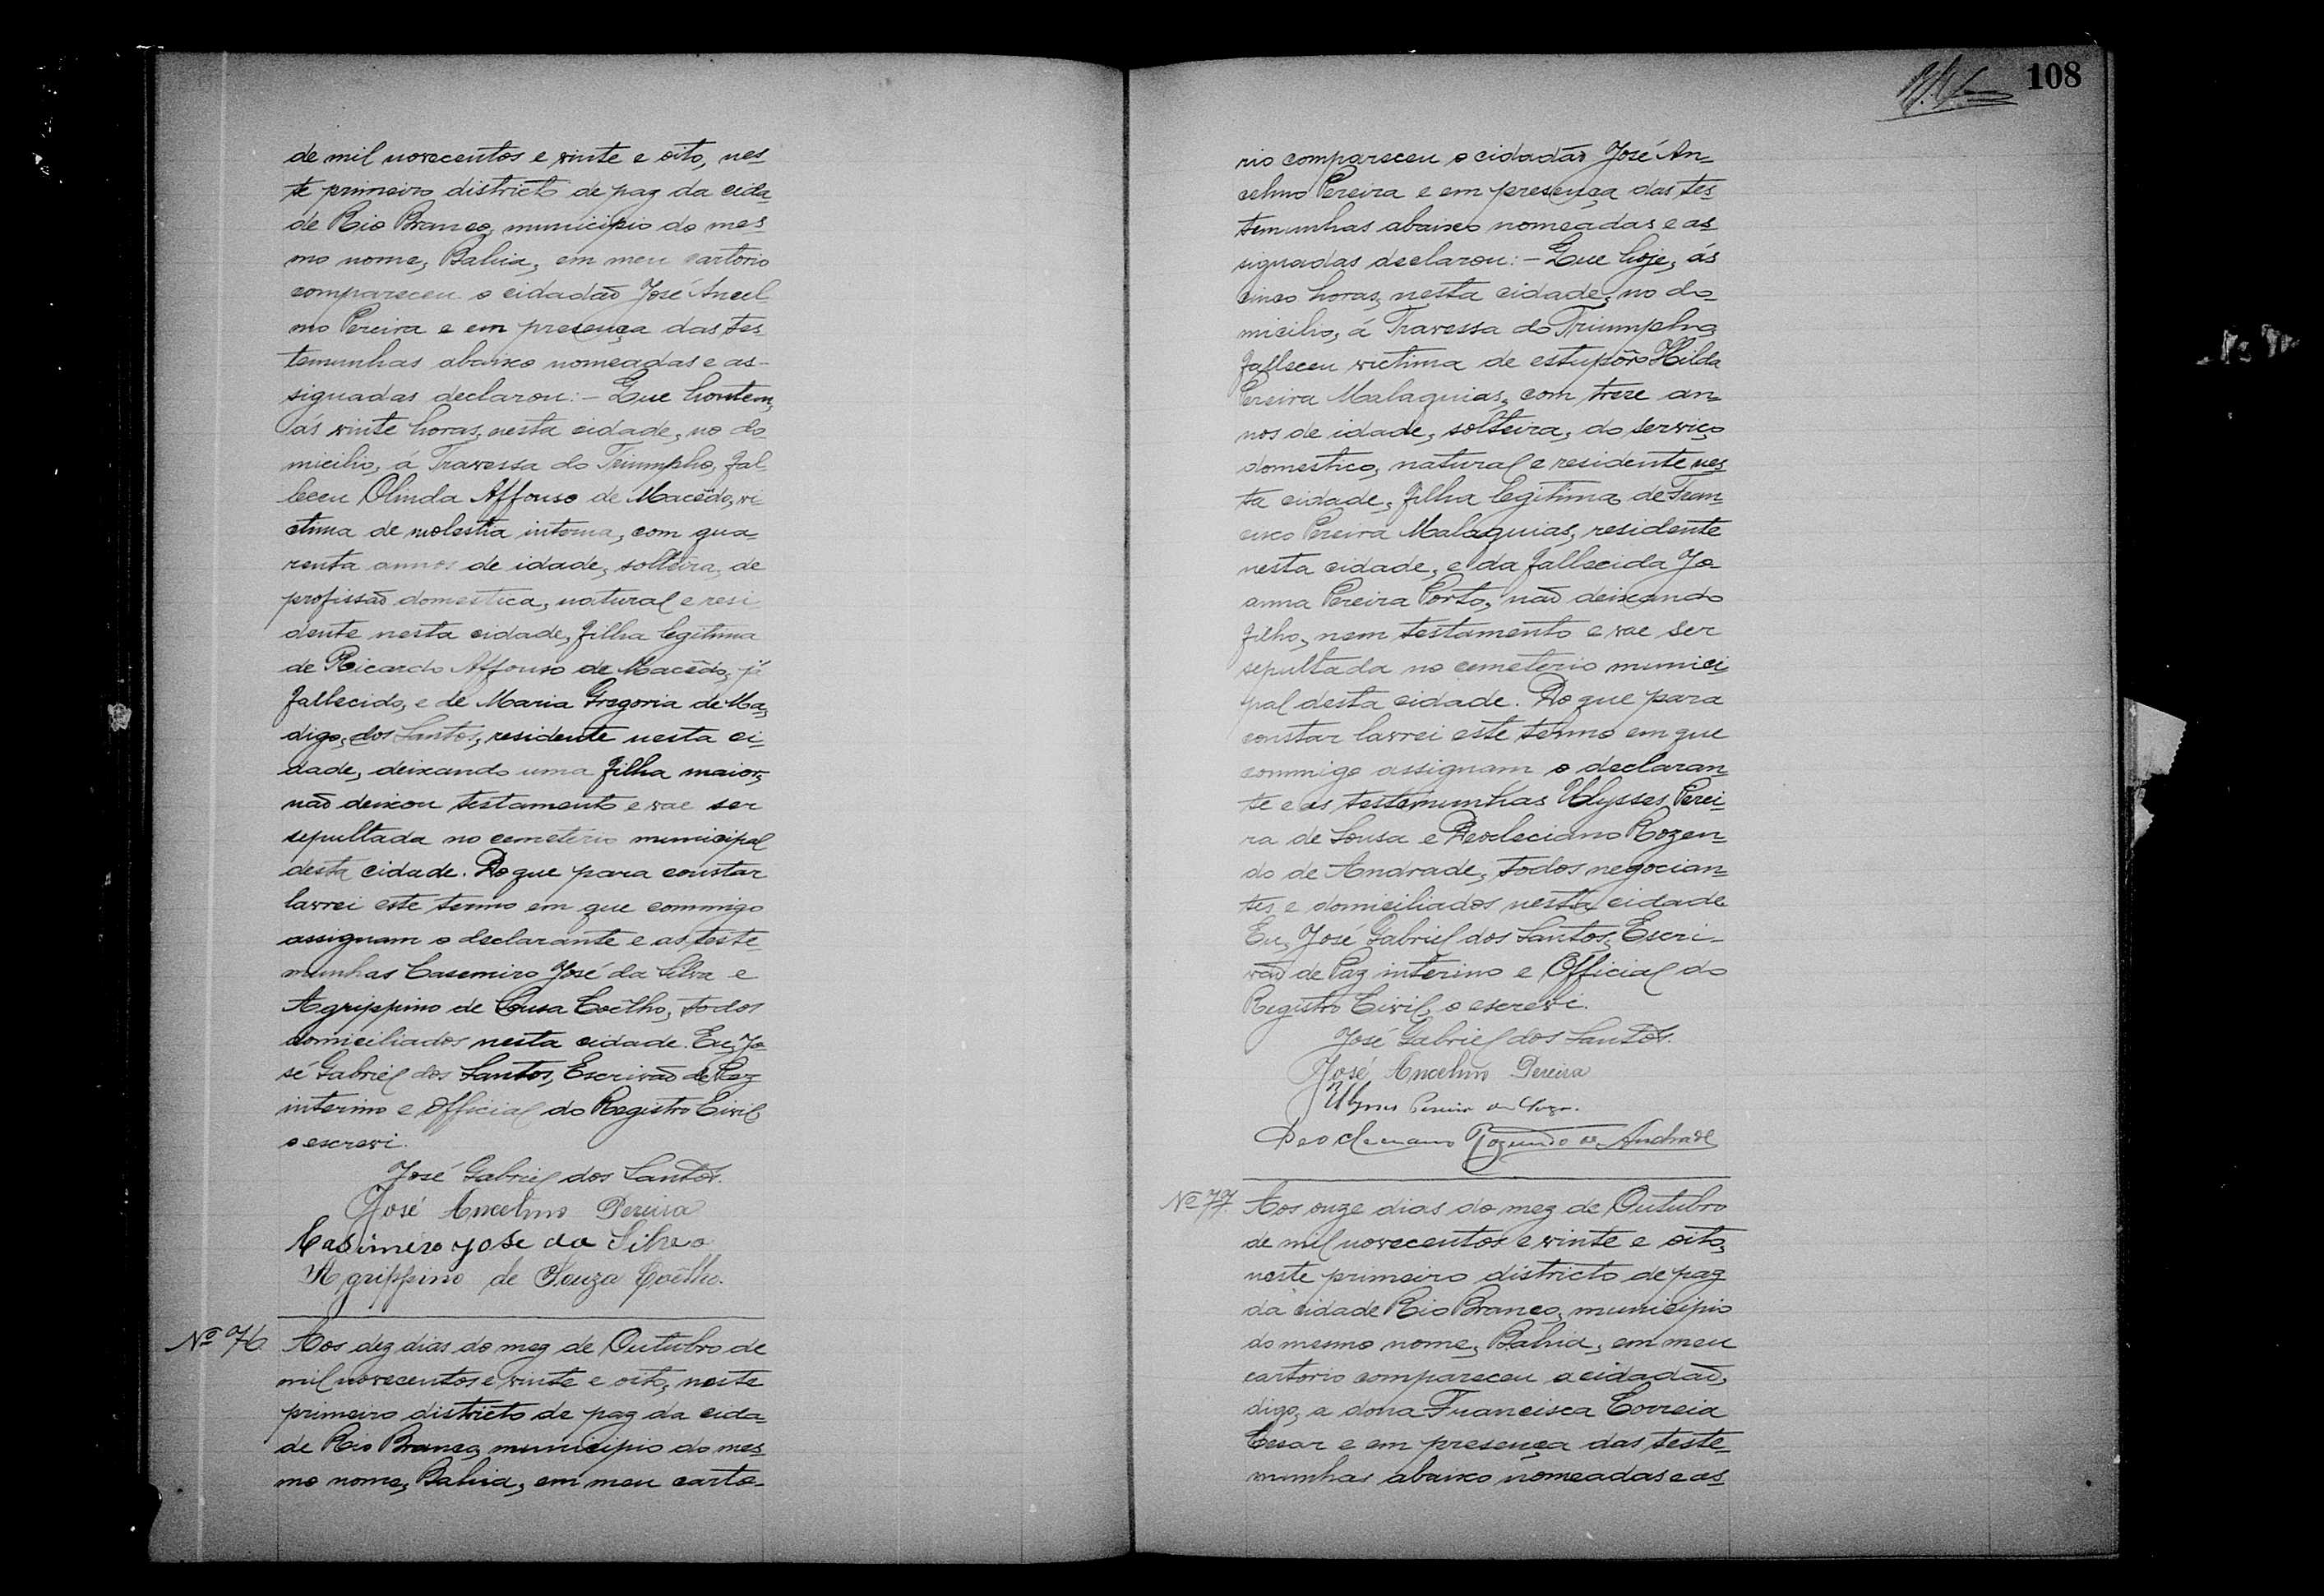 de mil novecentos e vinte e oito, nes
te primeiro districto de paz da cida
de Rio Branco, municipio do mes
mo nome, Bahia, em meu cartorio
compareceu o cidadão José Ancel
mo Pereira e em presença das tes
temunhas abaixo nomeadas e as-
signadas declarou:- Que hontem,
ás vinte horas, nesta cidade, no do
micilio, á Travessa do Triumpho, fal
leceu Olinda Affonso de Macêdo, vi
ctima de molestia interna, com qua-
renta annos de idade, solteira, de
profissão domestica, natural e resi
dente nesta cidade, filha legitima
de Ricardo Affonso de Macêdo, já
fallecido, e de Maria Gregoria de Ma,
digo, dos Santos, residente nesta ci-
dade, deixando uma filha maior,
não deixou testamento e vae ser
sepultada no cemeterio municipal
desta cidade. Do que para constar
lavrei este termo em que commigo
assignam o declarante e as teste
munhas Casemiro José da Silva e
Agrippino de Sousa Coêlho, todos
domiciliados nesta cidade. Eu, Jo
sé Gabriel dos Santos, Escrivão de Paz
interino e Official do Registro Civil,
o escrevi.
José Gabriel dos Santos.
José Ancelmo Pereira
Casimero jose da Silva
Agrippino de Souza Coêlho.
Nº 76. Aos dez dias do mez de Outubro de
mil novecentos e vinte e oito, neste
primeiro districto de paz da cida-
de Rio Branco, municipio do mes
mo nome, Bahia, em meu carto-
108
rio compareceu o cidadão José An-
celmo Pereira e em presença das tes
temunhas abaixo nomeadas e as
signadas declarou:- Que hoje, ás
cinco horas, nesta cidade, no do-
micilio, á Travessa do Triumpho,
falleceu victima de estupôr Hilda
Pereira Malaquias, com treze an-
nos de idade, solteira, do serviço
domestico, natural e residente nes
ta cidade, filha legitima de Fran-
cisco Pereira Malaquias, residente
nesta cidade, e da fallecida Jo-
anna Pereira Porto, não deixando
filho, nem testamento e vae ser
sepultada no cemeterio munici
pal desta cidade. Do que para
constar lavrei este termo em que
commigo assignam o declaran-
te e as testemunhas Ulysses Perei-
ra de Sousa e Deocleciano Rozen-
do de Andrade, todos negocian-
tes e domiciliados nesta cidade
Eu, José Gabriel dos Santos, Escri-
vão de Paz interino e Official do
Registro Civil, o escrevi.
José Gabriel dos Santos.
José Ancelmo Pereira
Ulysses Pereira de Souza.
Deocleciano Rozendo de Andrade
Nº 77. Aos onze dias do mez de Outubro
de mil novecentos e vinte e oito,
neste primeiro districto de paz
da cidade Rio Branco, municipio
do mesmo nome, Bahia, em meu
cartorio compareceu o cidadão,
digo, a dona Francisca Correia
Cesar e em presença das teste-
munhas abaixo nomeadas e as